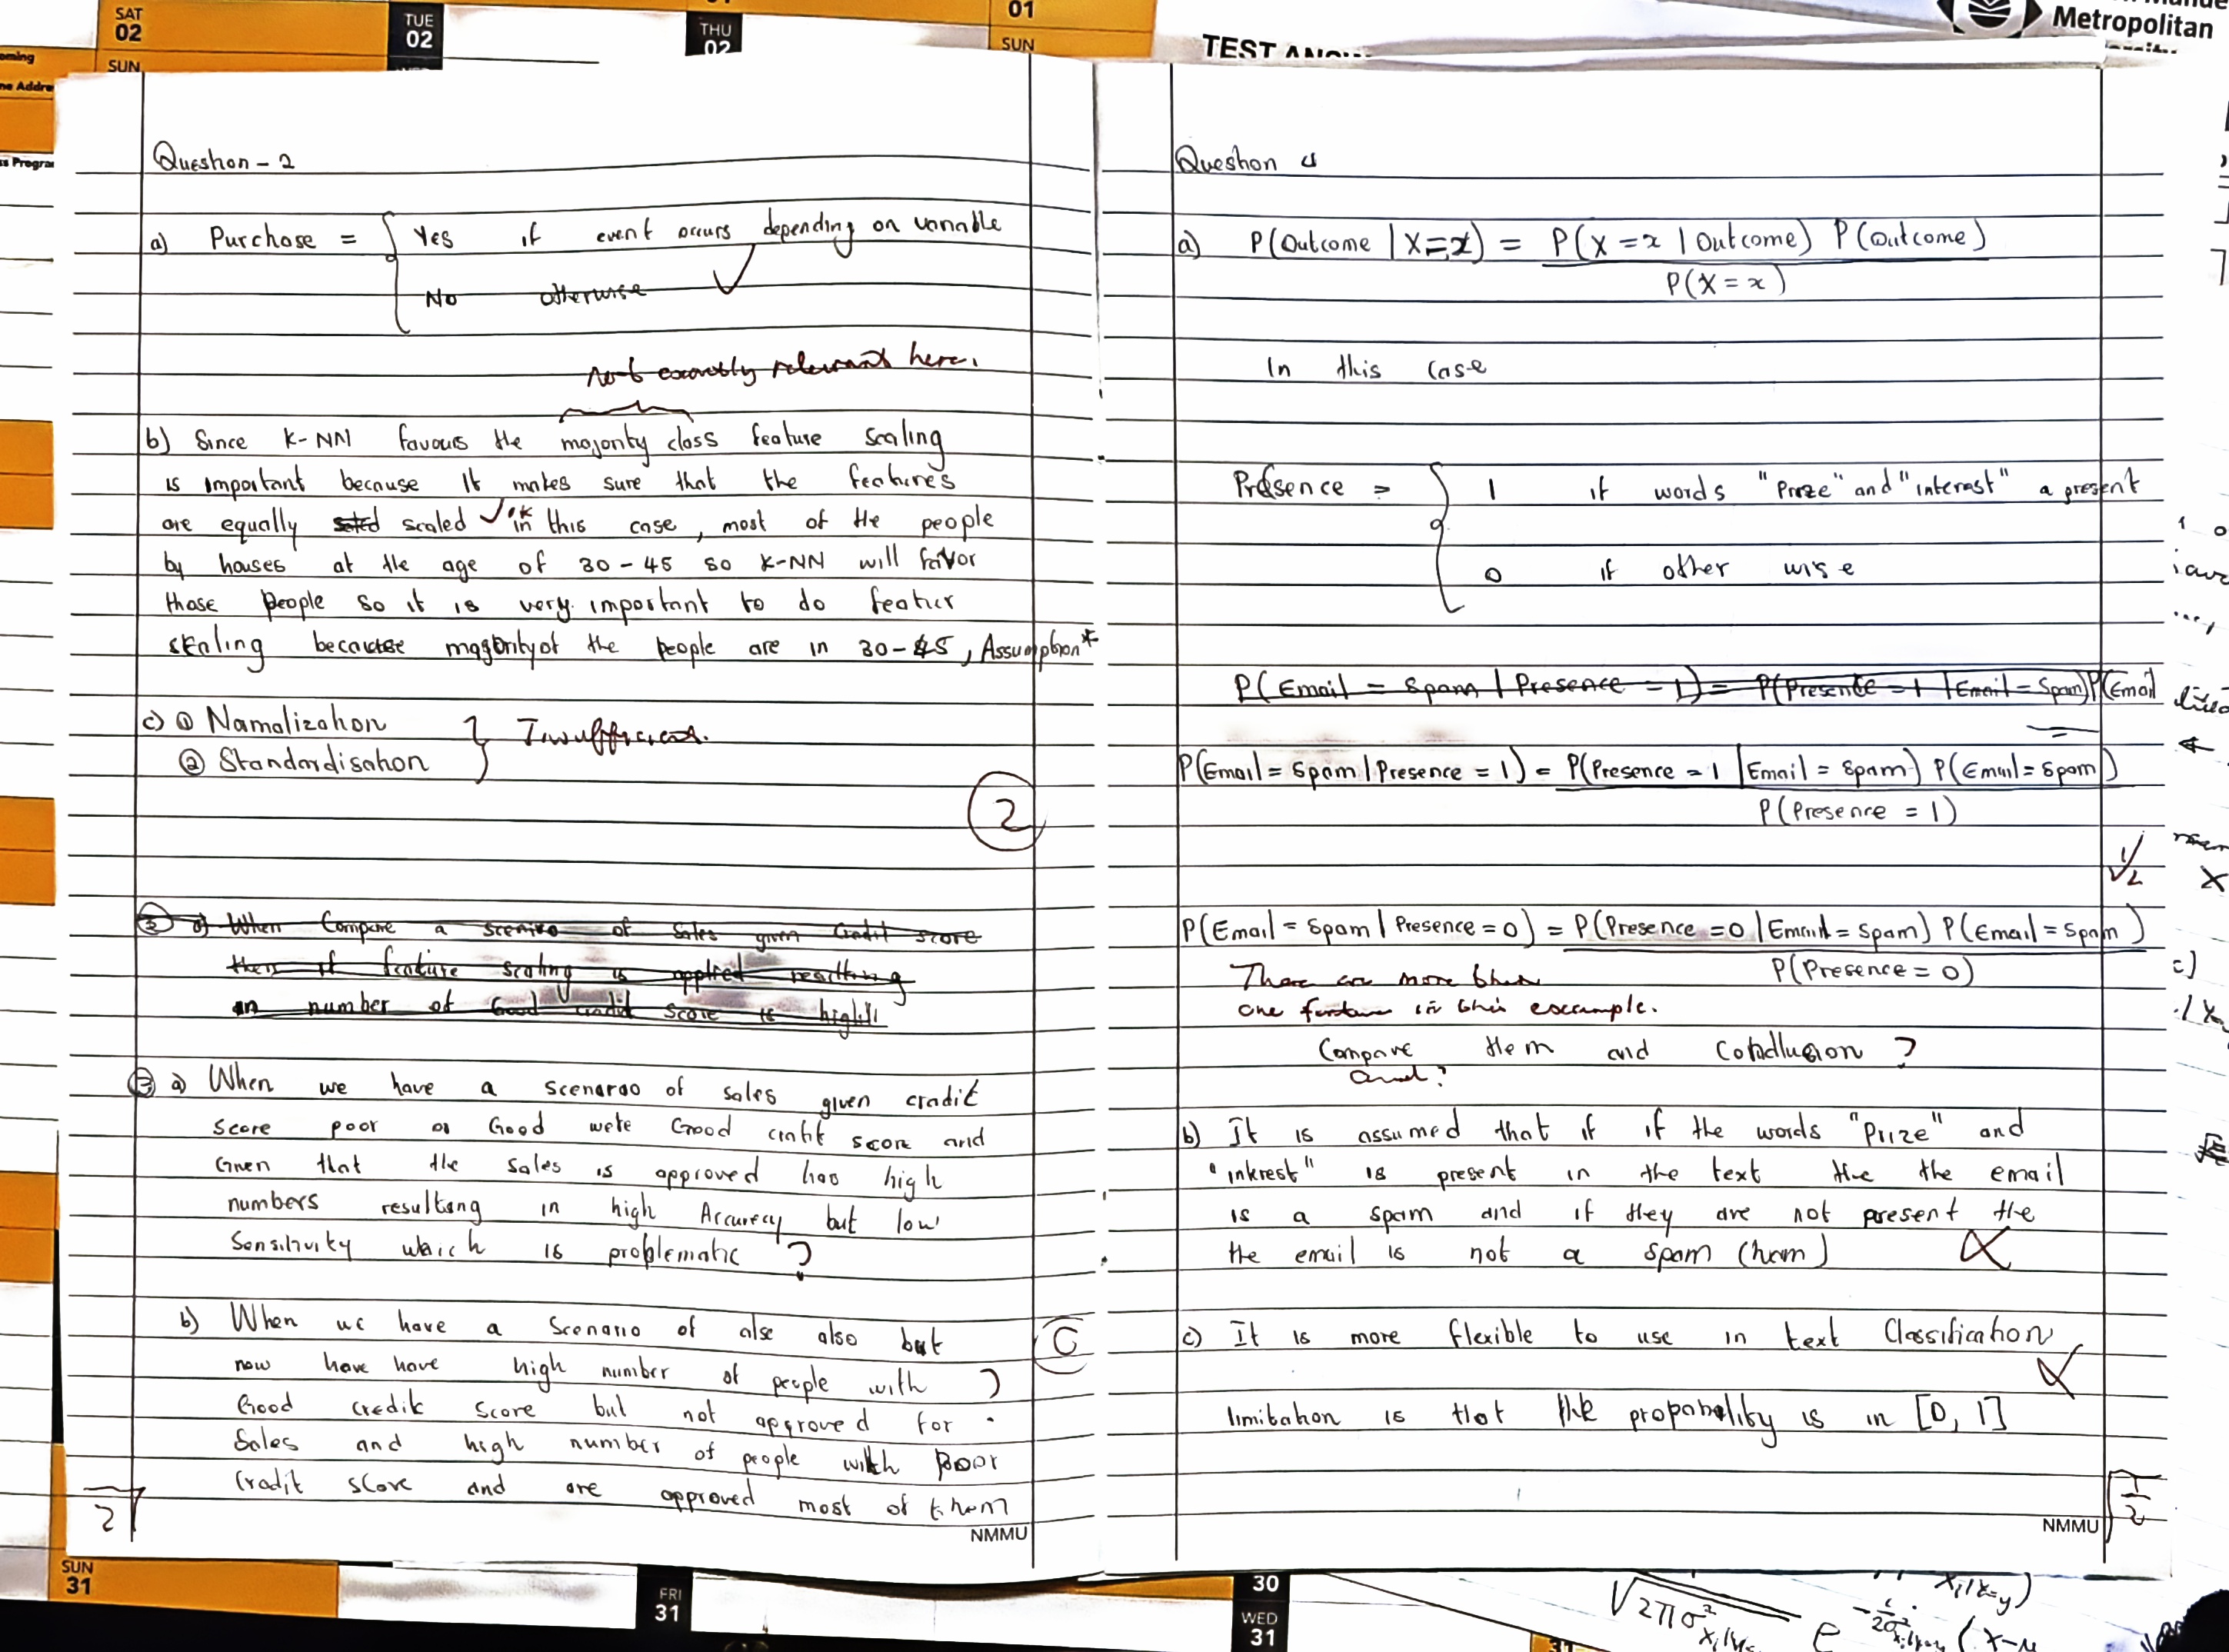 SAT
02
SUN
TUE
02
THU
02
01
SUN
TEST
Metropolitan
Question - 2
a) Purchase = Yes if event occurs depending on variable
No otherwise
Not exactly relevant here.
b) Since K-NN favours the majority class feature scaling
is important because it makes sure that the features
are equally scaled ok in this case, most of the people
by houses at the age of 30-45 so K-NN will favor
those people so it is very important to do featur
skaling because majority of the people are in 30-45, Assumption*
c) ① Normalization
② Standardisation } Insufficient.
2
② a) When Compare a of Sales given Credit score
then if feature scaling is applied resulting
in number of Good Credit Score is high
③ a) When we have a scenarao of sales given cradit
score poor or Good wete Good score and
Given that the sales is approved has high
numbers resultang in high Accuracy but low
Sensitivity which is problematic ?
b) When we have a Scenario of also but
now have have high number of people with ?
Good credit score but not approved for
Sales and high number of people with poor
Cradit score and are approved most of them
0
2
NMMU
Question 4
a) P(Outcome | X=x) = P(X=x | Outcome) P(Outcome)
P(X=x)
In this case
Presence = 1 if words "Prize" and "interest" a present
0 if other wise
P(Email = Spam | Presence = 1) = P(Presence = 1 | Email = Spam) P(Email
=
P(Email = Spam | Presence = 1) = P(Presence = 1 | Email = Spam) P(Email = Spam)
P(Presence = 1)
P(Email = Spam | Presence = 0) = P(Presence = 0 | Email = Spam) P(Email = Spam)
P(Presence = 0)
There are more than
one feature in this example.
Compare them and Conclusion ?
and?
b) It is assumed that if if the words "Prize" and
"intrest" is present in the text the the email
is a spam and if they are not present the
the email is not a spam (ham)
c) It is more flexible to use in text Classification
limitation is that the propability is in [0, 1]
1/2
NMMU
SUN
31
FRI
31
30
WED
31